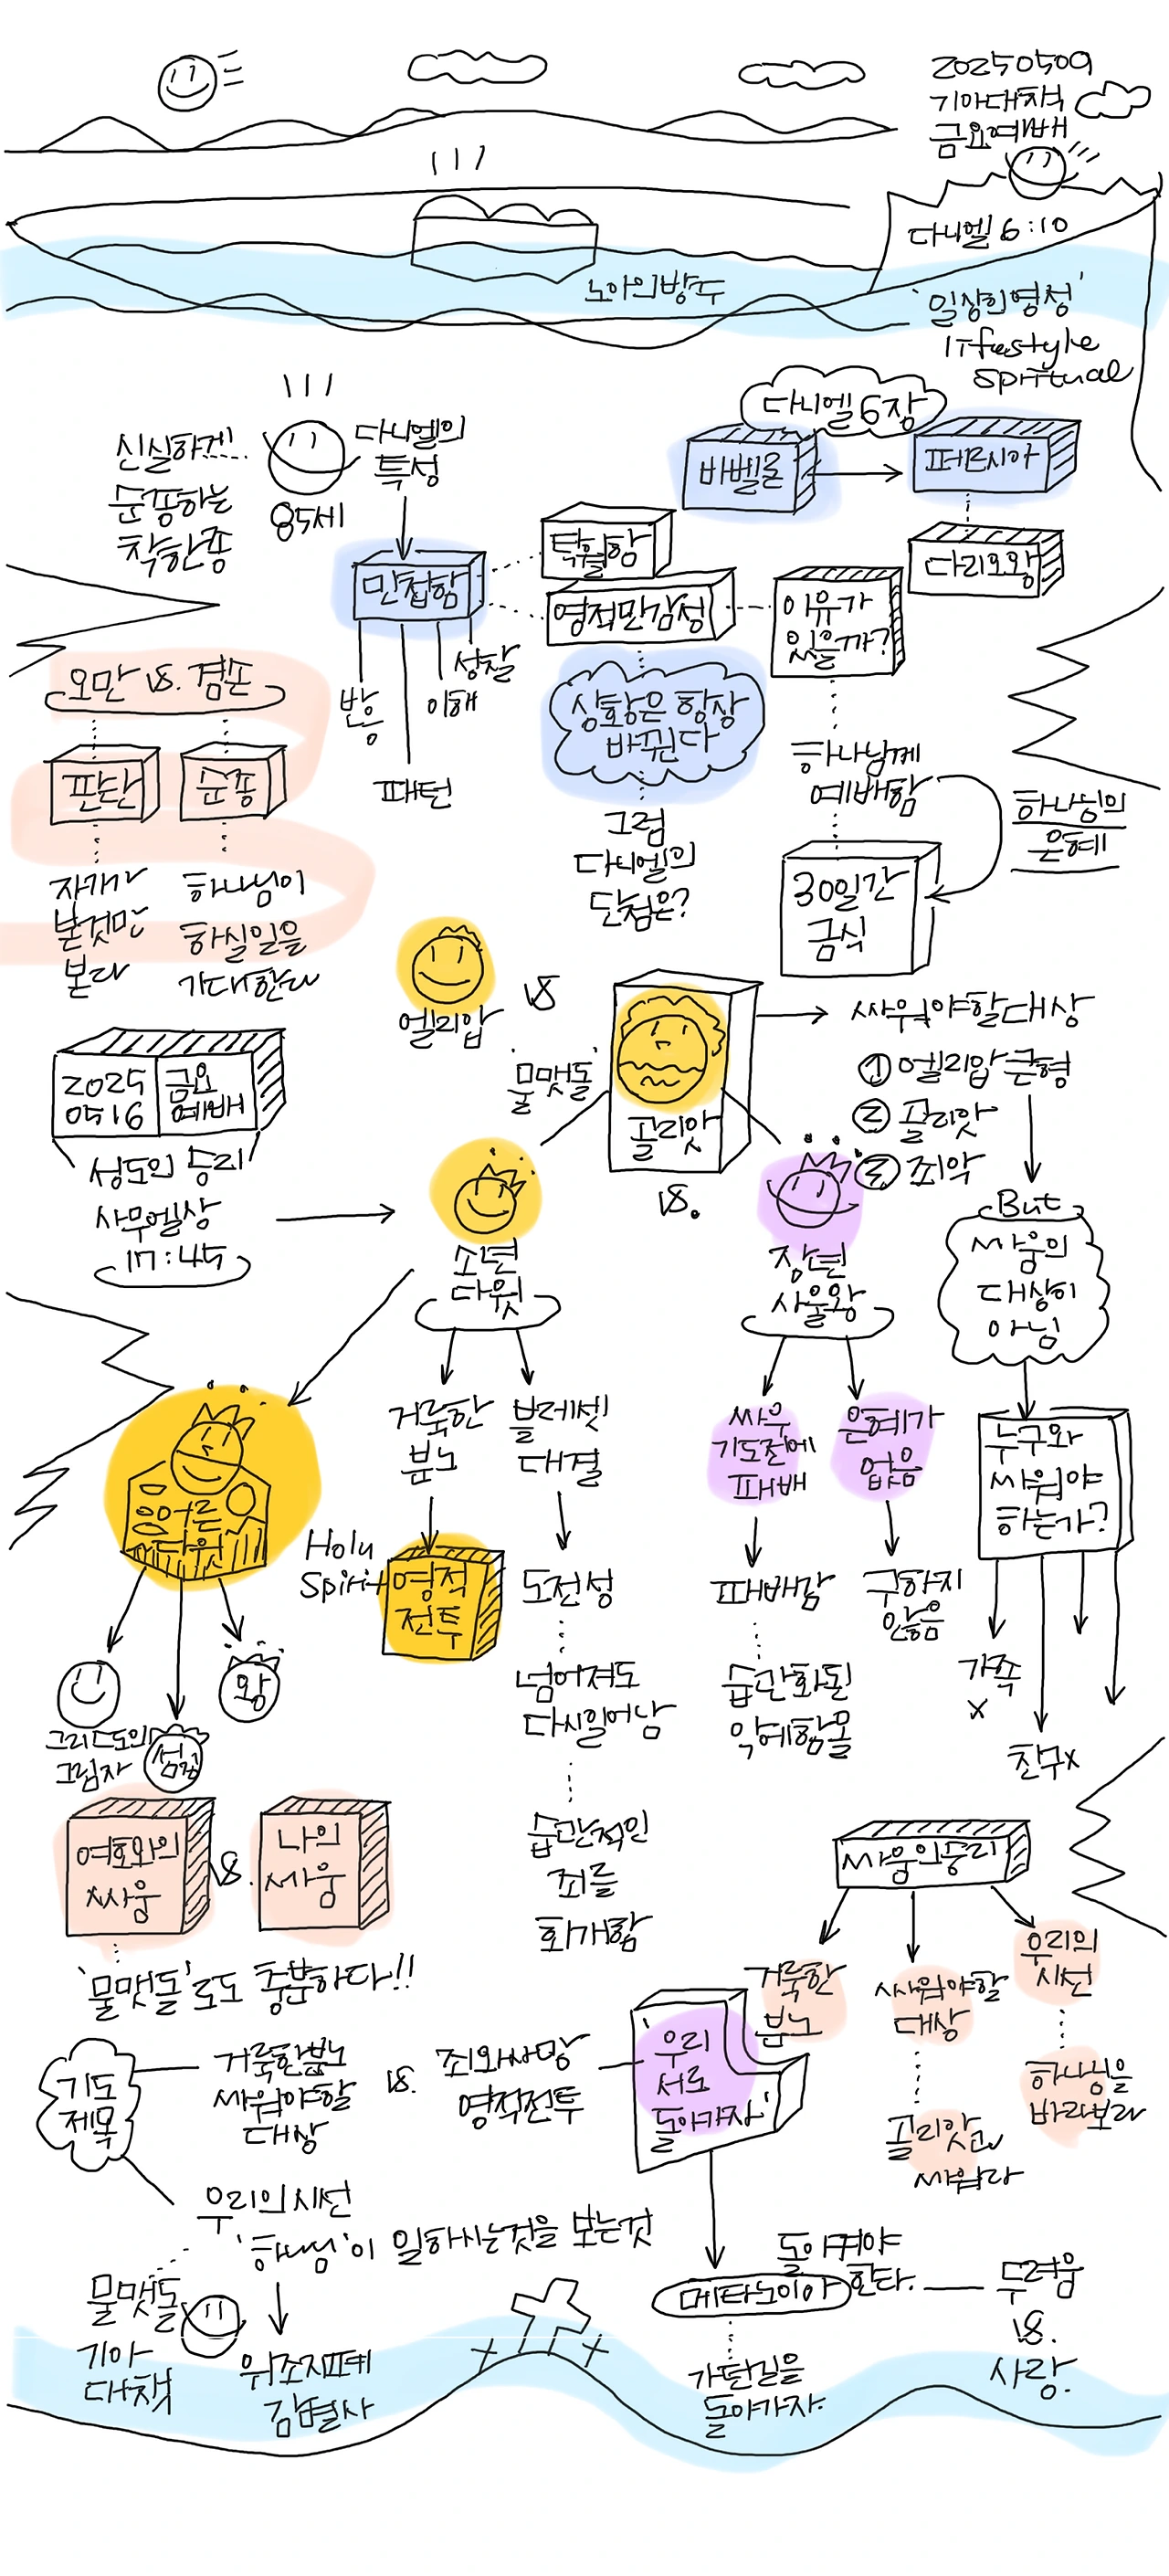 20250509
기아대책
금요예배
다니엘 6:10
노아의방주
'일상의영성'
lifestyle
spiritual
다니엘 6장
바벨론
페르시아
다리오왕
신실하게!
순종하는
착한종
85세
다니엘의
특성
민첩함
탁월함
영적민감성
이유가
있을까?
반응
패턴
이해
성찰
상황은 항상
바뀐다
그럼
다니엘의
단점은?
하나님께
예배함
하나님의
은혜
30일간
금식
오만 vs. 겸손
판단
순종
자기가
본것만
본다
하나님이
하실일을
기대한다
엘리압
vs
'물맷돌'
골리앗
싸워야할대상
① 엘리압큰형
② 골리앗
③ 죄악
2025
0516
금요
예배
성도의 승리
사무엘상
17:45
소년
다윗
vs.
장년
사울왕
But
싸움의
대상이
아님
누구와
싸워야
하는가?
가족
x
친구x
거룩한
분노
블레셋
대결
싸우
기도전에
패배
은혜가
없음
어른
다윗
Holy
Spirit
영적
전투
도전성
넘어져도
다시일어남
습관적인
죄를
회개함
패배감
습관화된
악에함몰
구하지
않음
그리스도의
그림자
섬김
왕
여호와의
싸움
vs.
나의
싸움
'물맷돌'로도 충분하다!!
싸움의승리
거룩한
분노
싸워야할
대상
골리앗과
싸워라
우리의
시선
하나님을
바라보라
기도
제목
거룩한분노
싸워야할
대상
vs.
죄와사망
영적전투
'우리
서로
돌아가자'
우리의시선
'하나님'이 일하시는것을 보는것
물맷돌
기아
대책
위조지폐
감별사
돌이켜야
한다.
메타노이아
가던길을
돌아가자.
두려움
vs.
사랑.